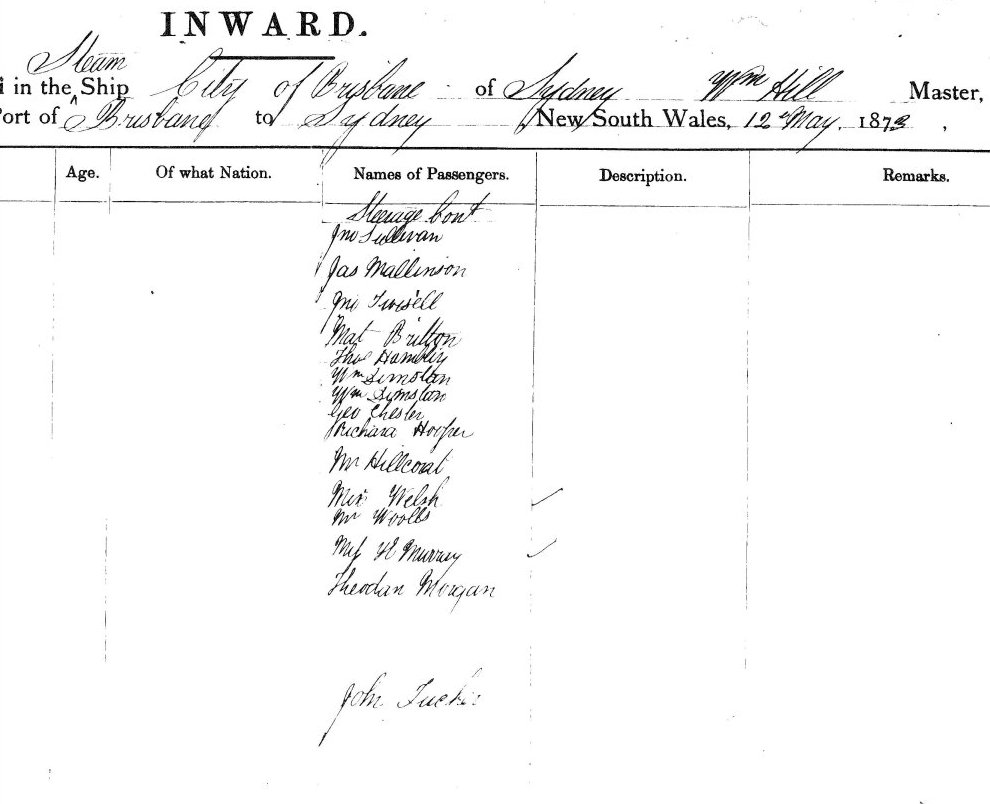 INWARD.
Steam
in the Ship City of Brisbane of Sydney Wm Hill Master,
Port of Brisbane to Sydney New South Wales, 12 May, 1873,
Age. Of what Nation. Names of Passengers. Description. Remarks.
Steerage Cont
Jno Sullivan
Jas Mallinson
Jno Twisell
Mat Britton
Thos Hamblin
Wm
Wm Simston
Geo Chester
Richard Hooper
Mr Hillcoat
Welsh
Mr Woolls
H Murray
Theodan Morgan
John Tucker